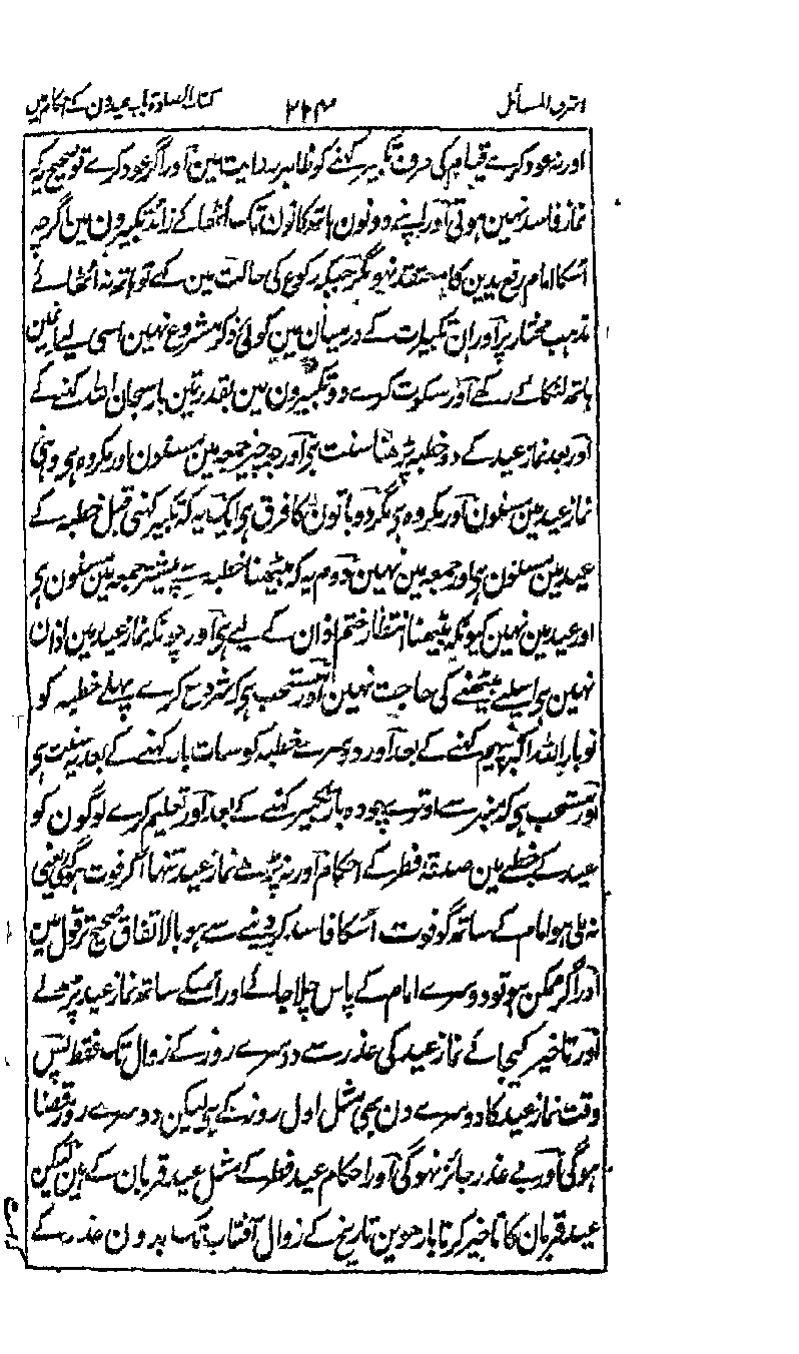 اشرف المسائل ۲۲۴ کتاب الصلوۃ باب عیدون کے احکام مین
اور نہ عود کرے قیام کی طرف تکبیر کہنے کو ظاہر روایت مین اور اگر عود کرے تو صحیح یہ کہ
نماز فاسد نہین ہوتی اور اپنے دونون ہاتھ کانون تک اٹھائے زائد تکبیرون مین اگرچہ
اسکا امام رفع یدین کا معتقد نہو مگر جبکہ رکوع کی حالت مین کہے تو ہاتھ نہ اٹھائے
مذہب مختار پر اور ان تکبیرات کے درمیان مین کوئی ذکر مشروع نہین اسی لیے انمین
ہاتھ لٹکائے رکھے اور سکوت کرے دو تکبیرون مین بقدر تین بار سبحان اللہ کہنے کے
اور بعد نماز عید کے دو خطبہ پڑھنا سنت ہی اور جو چیز جمعہ مین مسنون اور مکروہ ہی وہی
نماز عید مین مسنون اور مکروہ ہی مگر دو باتون کا فرق ہی ایک یہ کہ تکبیر کہنی قبل خطبہ کے
عید مین مسنون ہی اور جمعہ مین نہین دوم یہ کہ بیٹھنا خطبہ سے پیشتر جمعہ مین مسنون ہی
اور عید مین نہین کیونکہ بیٹھنا انتظار ختم اذان کے لیے ہی اور چونکہ نماز عید مین اذان
نہین ہی اسلیے بیٹھنے کی حاجت نہین اور مستحب ہی کہ شروع کرے پہلے خطبہ کو
نو بار اللہ اکبر پیہم کہنے کے بعد اور دوسرے خطبہ کو سات بار کہنے کے بعد یہ سنت ہی
اور مستحب ہی کہ منبر سے اوترے چودہ بار تکبیر کہنے کے بعد اور تعلیم کرے لوگون کو
عید کے خطبے مین صدقۂ فطر کے احکام اور نہ پڑھے نماز عید تنہا اگر فوت ہوگئی یعنی
نہ ملی ہو امام کے ساتھ گو فوت اسکا فاسد کر دینے سے ہو بالاتفاق صحیح تر قول مین
اور اگر ممکن ہو تو دوسرے امام کے پاس چلا جائے اور اسکے ساتھ نماز عید پڑھ لے
اور تاخیر کیجائے نماز عید کی عذر سے دوسرے روز کے زوال تک فقط پس
وقت نماز عید کا دوسرے دن بھی مثل اول روز کے ہی لیکن دوسرے روز قضا
ہوگی اور بے عذر جائز نہوگی اور احکام عید فطر کے مثل عید قربان کے ہین لیکن
عید قربان کا تاخیر کرنا بارھوین تاریخ کے زوال آفتاب تک بدون عذر کے